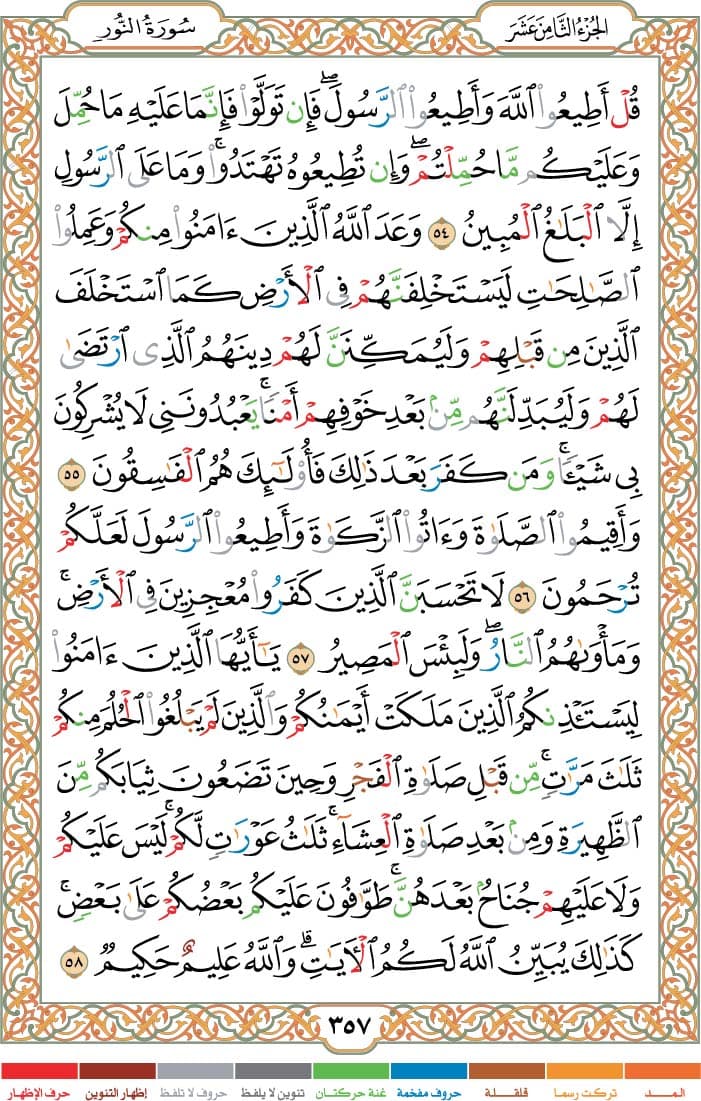 سُورَةُ النُّورِ
الجُزْءُ الثَّامِنَ عَشَرَ
قُلْ أَطِيعُوا۟ ٱللَّهَ وَأَطِيعُوا۟ ٱلرَّسُولَ ۖ فَإِن تَوَلَّوْا۟ فَإِنَّمَا عَلَيْهِ مَا حُمِّلَ
وَعَلَيْكُم مَّا حُمِّلْتُمْ ۖ وَإِن تُطِيعُوهُ تَهْتَدُوا۟ ۚ وَمَا عَلَى ٱلرَّسُولِ
إِلَّا ٱلْبَلَـٰغُ ٱلْمُبِينُ ٥٤ وَعَدَ ٱللَّهُ ٱلَّذِينَ ءَامَنُوا۟ مِنكُمْ وَعَمِلُوا۟
ٱلصَّـٰلِحَـٰتِ لَيَسْتَخْلِفَنَّهُمْ فِى ٱلْأَرْضِ كَمَا ٱسْتَخْلَفَ
ٱلَّذِينَ مِن قَبْلِهِمْ وَلَيُمَكِّنَنَّ لَهُمْ دِينَهُمُ ٱلَّذِى ٱرْتَضَىٰ
لَهُمْ وَلَيُبَدِّلَنَّهُم مِّنۢ بَعْدِ خَوْفِهِمْ أَمْنًا ۚ يَعْبُدُونَنِى لَا يُشْرِكُونَ
بِى شَيْـًٔا ۚ وَمَن كَفَرَ بَعْدَ ذَٰلِكَ فَأُو۟لَـٰٓئِكَ هُمُ ٱلْفَـٰسِقُونَ ٥٥
وَأَقِيمُوا۟ ٱلصَّلَوٰةَ وَءَاتُوا۟ ٱلزَّكَوٰةَ وَأَطِيعُوا۟ ٱلرَّسُولَ لَعَلَّكُمْ
تُرْحَمُونَ ٥٦ لَا تَحْسَبَنَّ ٱلَّذِينَ كَفَرُوا۟ مُعْجِزِينَ فِى ٱلْأَرْضِ ۚ
وَمَأْوَىٰهُمُ ٱلنَّارُ ۖ وَلَبِئْسَ ٱلْمَصِيرُ ٥٧ يَـٰٓأَيُّهَا ٱلَّذِينَ ءَامَنُوا۟
لِيَسْتَـْٔذِنكُمُ ٱلَّذِينَ مَلَكَتْ أَيْمَـٰنُكُمْ وَٱلَّذِينَ لَمْ يَبْلُغُوا۟ ٱلْحُلُمَ مِنكُمْ
ثَلَـٰثَ مَرَّٰتٍ ۚ مِّن قَبْلِ صَلَوٰةِ ٱلْفَجْرِ وَحِينَ تَضَعُونَ ثِيَابَكُم مِّنَ
ٱلظَّهِيرَةِ وَمِنۢ بَعْدِ صَلَوٰةِ ٱلْعِشَآءِ ۚ ثَلَـٰثُ عَوْرَٰتٍ لَّكُمْ ۚ لَيْسَ عَلَيْكُمْ
وَلَا عَلَيْهِمْ جُنَاحٌۢ بَعْدَهُنَّ ۚ طَوَّٰفُونَ عَلَيْكُم بَعْضُكُمْ عَلَىٰ بَعْضٍ ۚ
كَذَٰلِكَ يُبَيِّنُ ٱللَّهُ لَكُمُ ٱلْـَٔايَـٰتِ ۗ وَٱللَّهُ عَلِيمٌ حَكِيمٌ ٥٨
٣٥٧
المـــد تركت رسما قلقـلـة حروف مفخمة غنة حركتان تنوين لا يلفظ حروف لا تلفظ إظهار التنوين حرف الإظهار